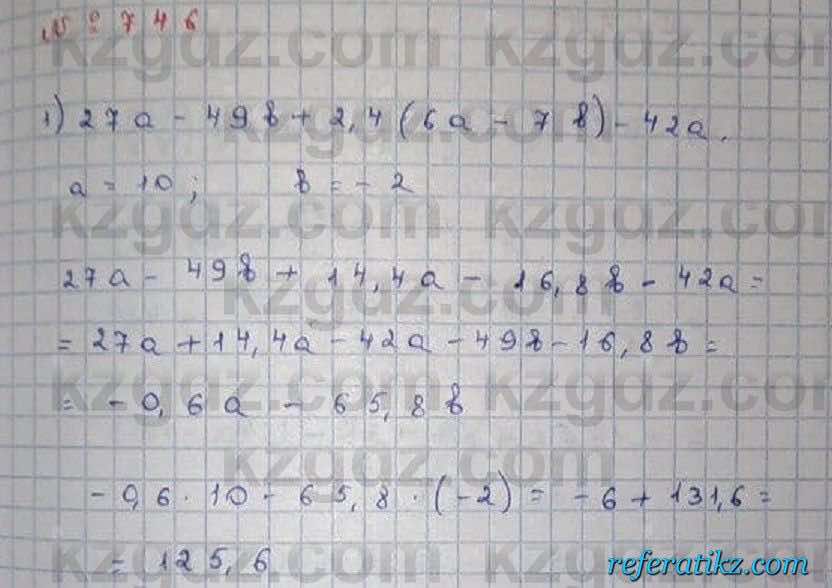 № 746
1) 27a - 49b + 2,4 (6a - 7b) - 42a.
a = 10; b = - 2
27a - 49b + 14,4a - 16,8b - 42a =
= 27a + 14,4a - 42a - 49b - 16,8b =
= - 0,6a - 65,8b
- 0,6 · 10 - 65,8 · (-2) = - 6 + 131,6 =
= 125,6
kzgdz.com
referatikz.com